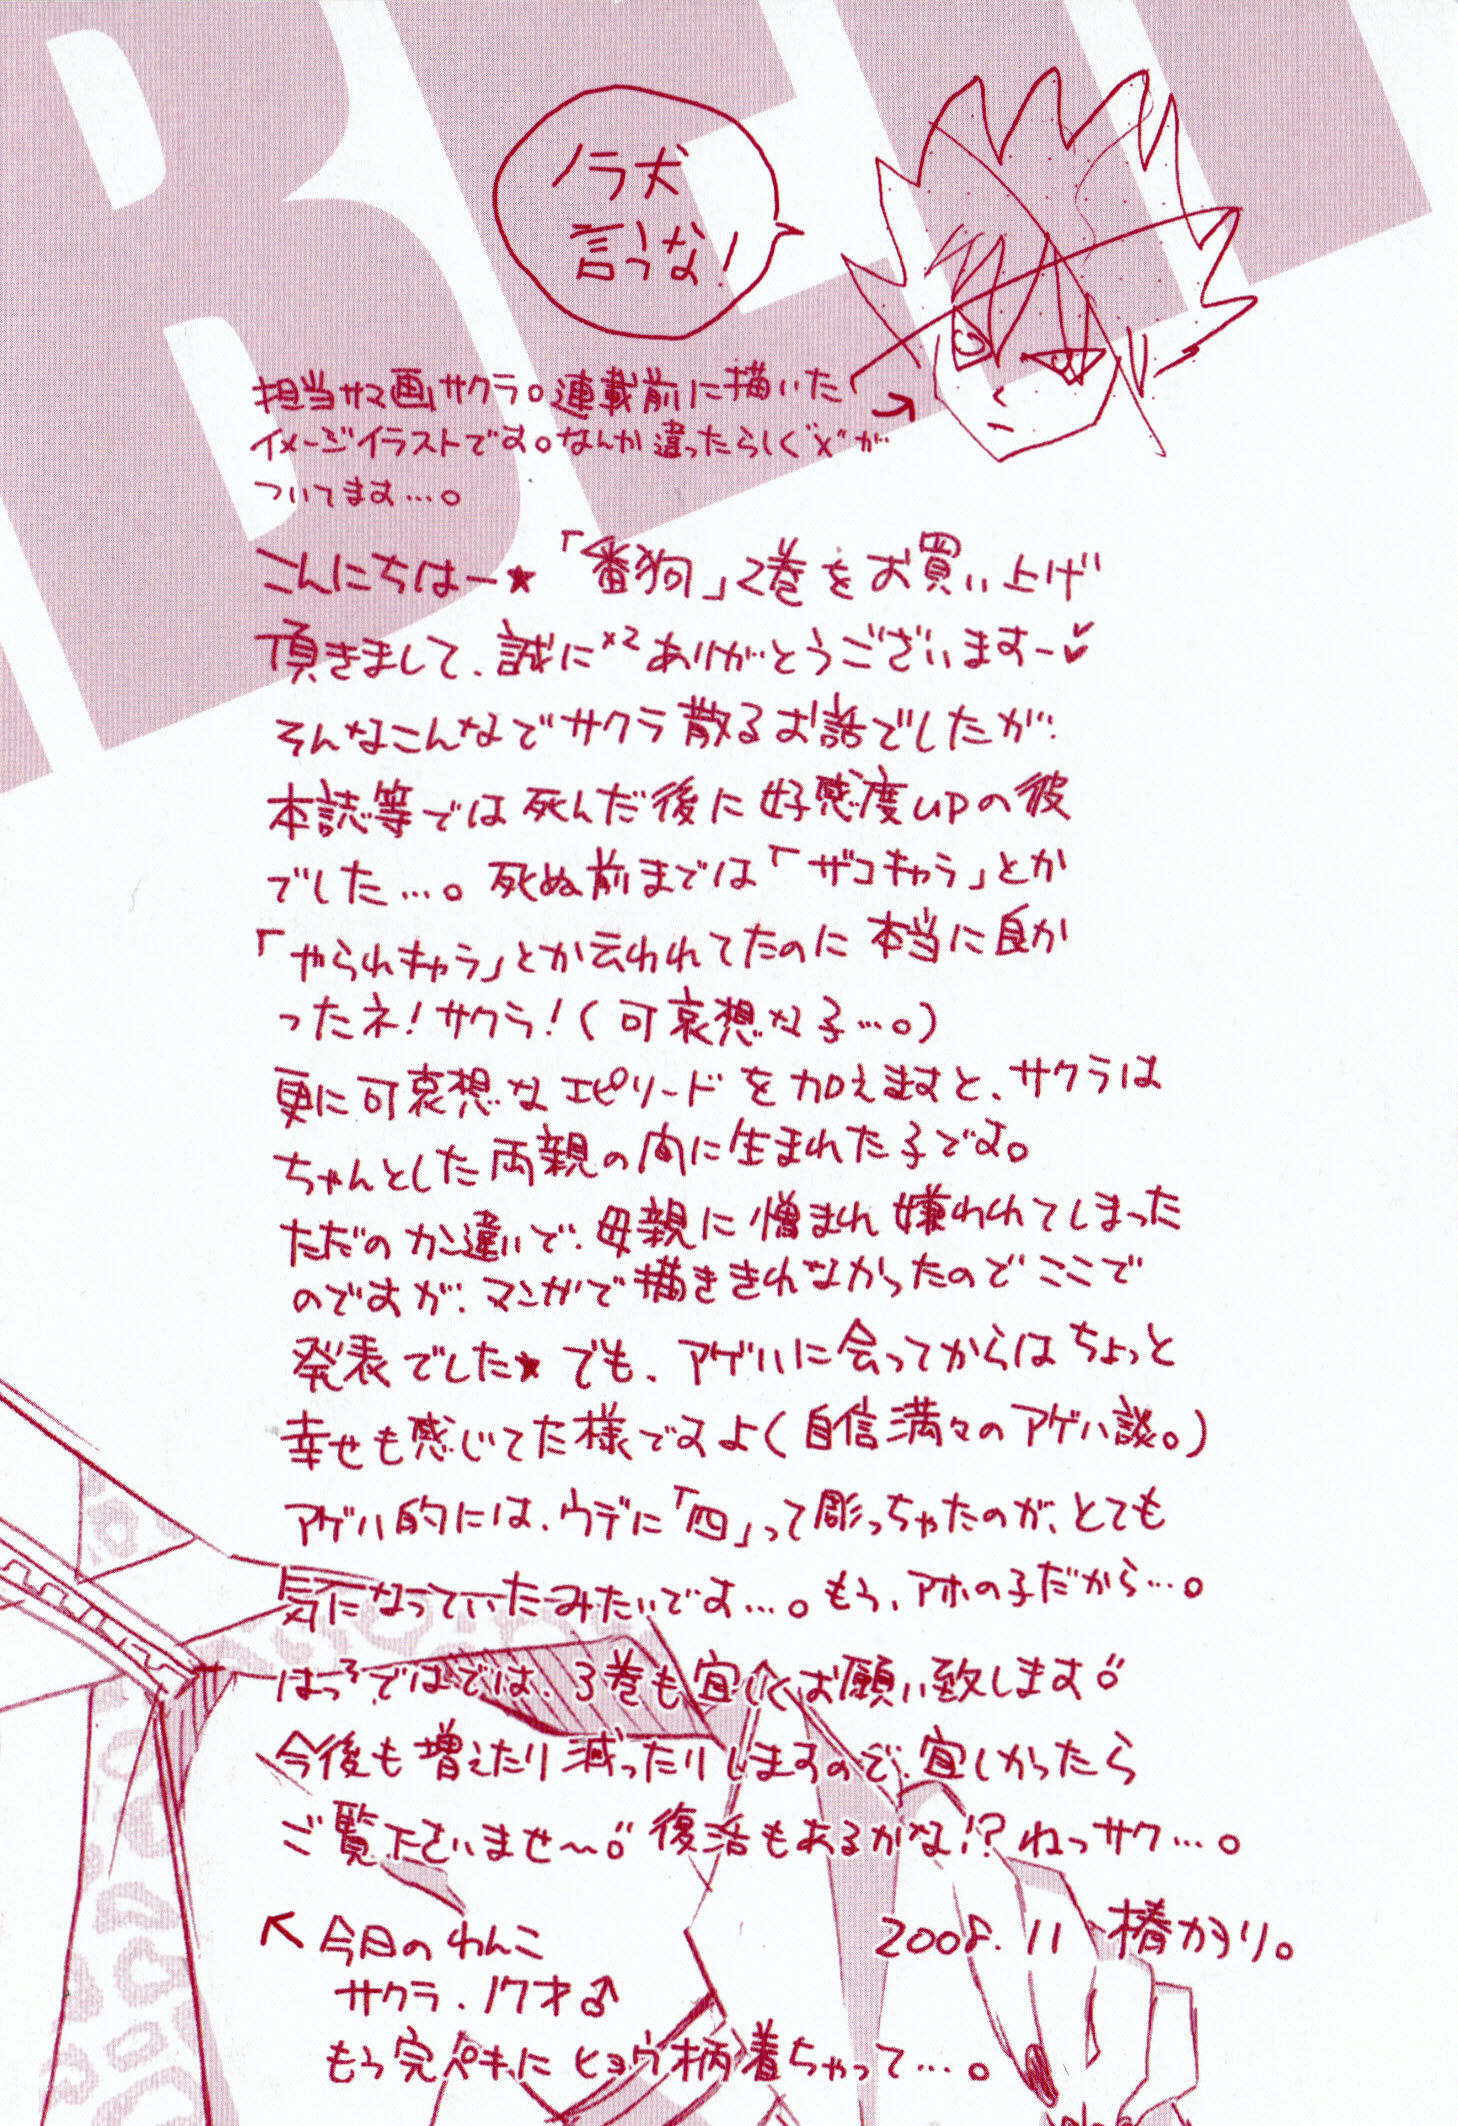 ノラ犬
言うな!
担当サマ画サクラ。連載前に描いた
イメージイラストです。なんか違ったらしく"x"が
ついてます…。
こんにちはー★「番狗」2巻をお買い上げ
頂きまして、誠に×2ありがとうございますー♥
そんなこんなでサクラ散るお話でしたが、
本誌等では死んだ後に好感度upの彼
でした…。死ぬ前までは「ザコキャラ」とか
「やられキャラ」とか云われてたのに本当に良か
ったネ!サクラ!(可哀想な子…。)
更に可哀想なエピソードを加えますと、サクラは
ちゃんとした両親の間に生まれた子です。
ただのカン違いで、母親に憎まれ嫌われてしまった
のですが、マンガで描ききれなかったのでここで
発表でした★でも、アゲハに会ってからはちょっと
幸せも感じてた様ですよ(自信満々のアゲハ談。)
アゲハ的には、ウデに「四」って彫っちゃたのが、とても
気になっていたみたいです…。もう、アホの子だから…。
はっ!ではでは、3巻も宜しくお願い致します
今後も増えたり減ったりしますので、宜しかったら
ご覧下さいませ〜 復活もあるかな!?ねっサク…。
2008.11 椿カヲリ。
今日のわんこ
サクラ、17才♂
もう完ペキにヒョウ柄着ちゃって…。